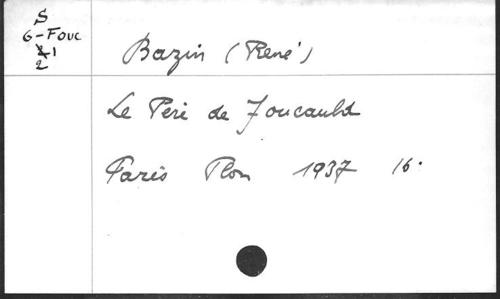 S
G-Fouc
1
2
Bazin (René)
Le Père de Foucauld
Paris Plon 1937 16.